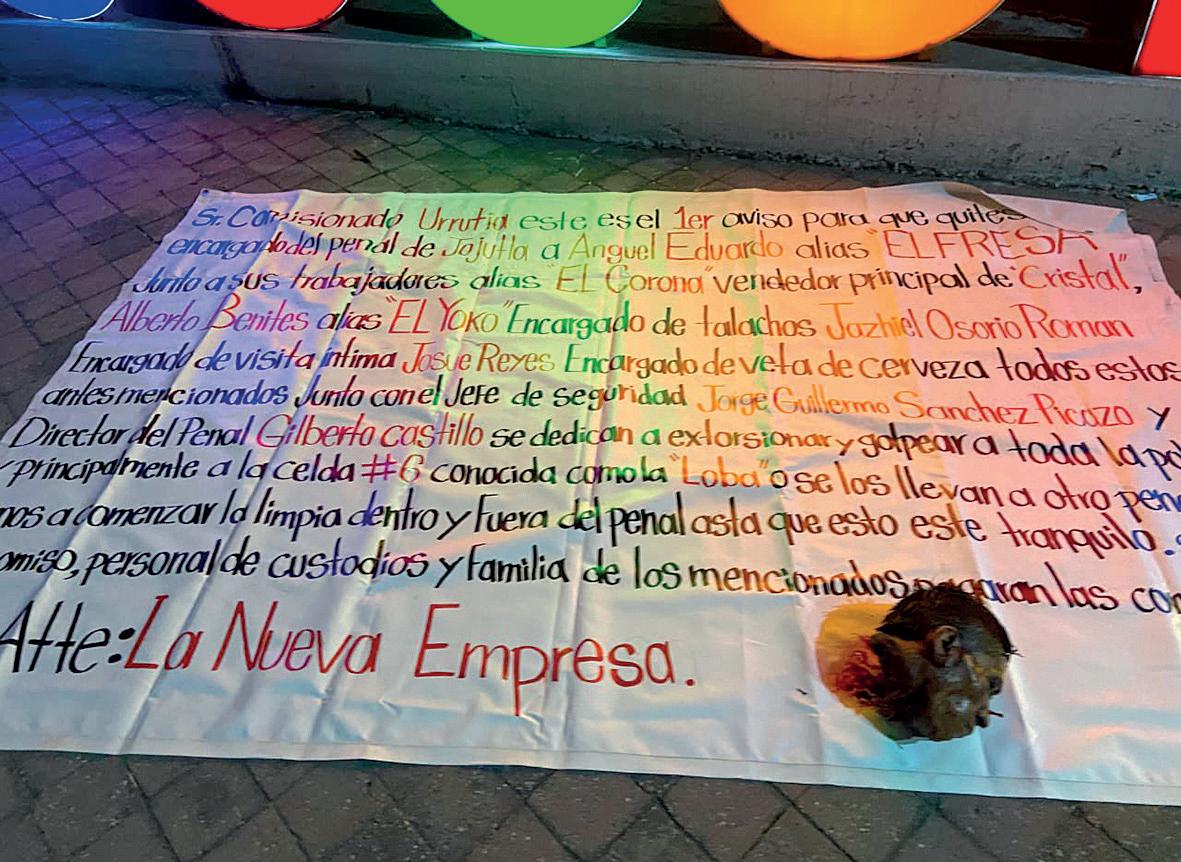 Sr. Comisionado Urrutia este es el 1er aviso para que quites
encargado del penal de Jojutla a Anguel Eduardo alias "EL FRESA
Junto a sus trabajadores alias "EL Corona" vendedor principal de "Cristal",
Alberto Benites alias "EL YOKO" Encargado de talachos Jazhiel Osorio Roman
Encargado de visita íntima Josue Reyes Encargado de veta de cerveza todos estos
antes mencionados Junto con el Jefe de seguridad Jorge Guillermo Sanchez Picazo y
Director del Penal Gilberto castillo se dedican a extorsionar y golpear a toda la po
y principalmente a la celda #6 conocida como la "Loba" o se los llevan a otro pen
nos a comenzar la limpia dentro y fuera del penal asta que esto este tranquilo.
omiso, personal de custodios y familia de los mencionados pagaran las co
Atte: La Nueva Empresa.